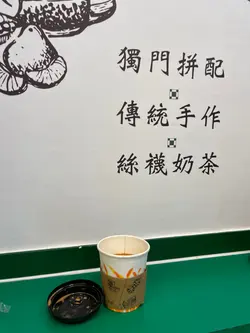 獨門拼配
傳統手作
絲襪奶茶